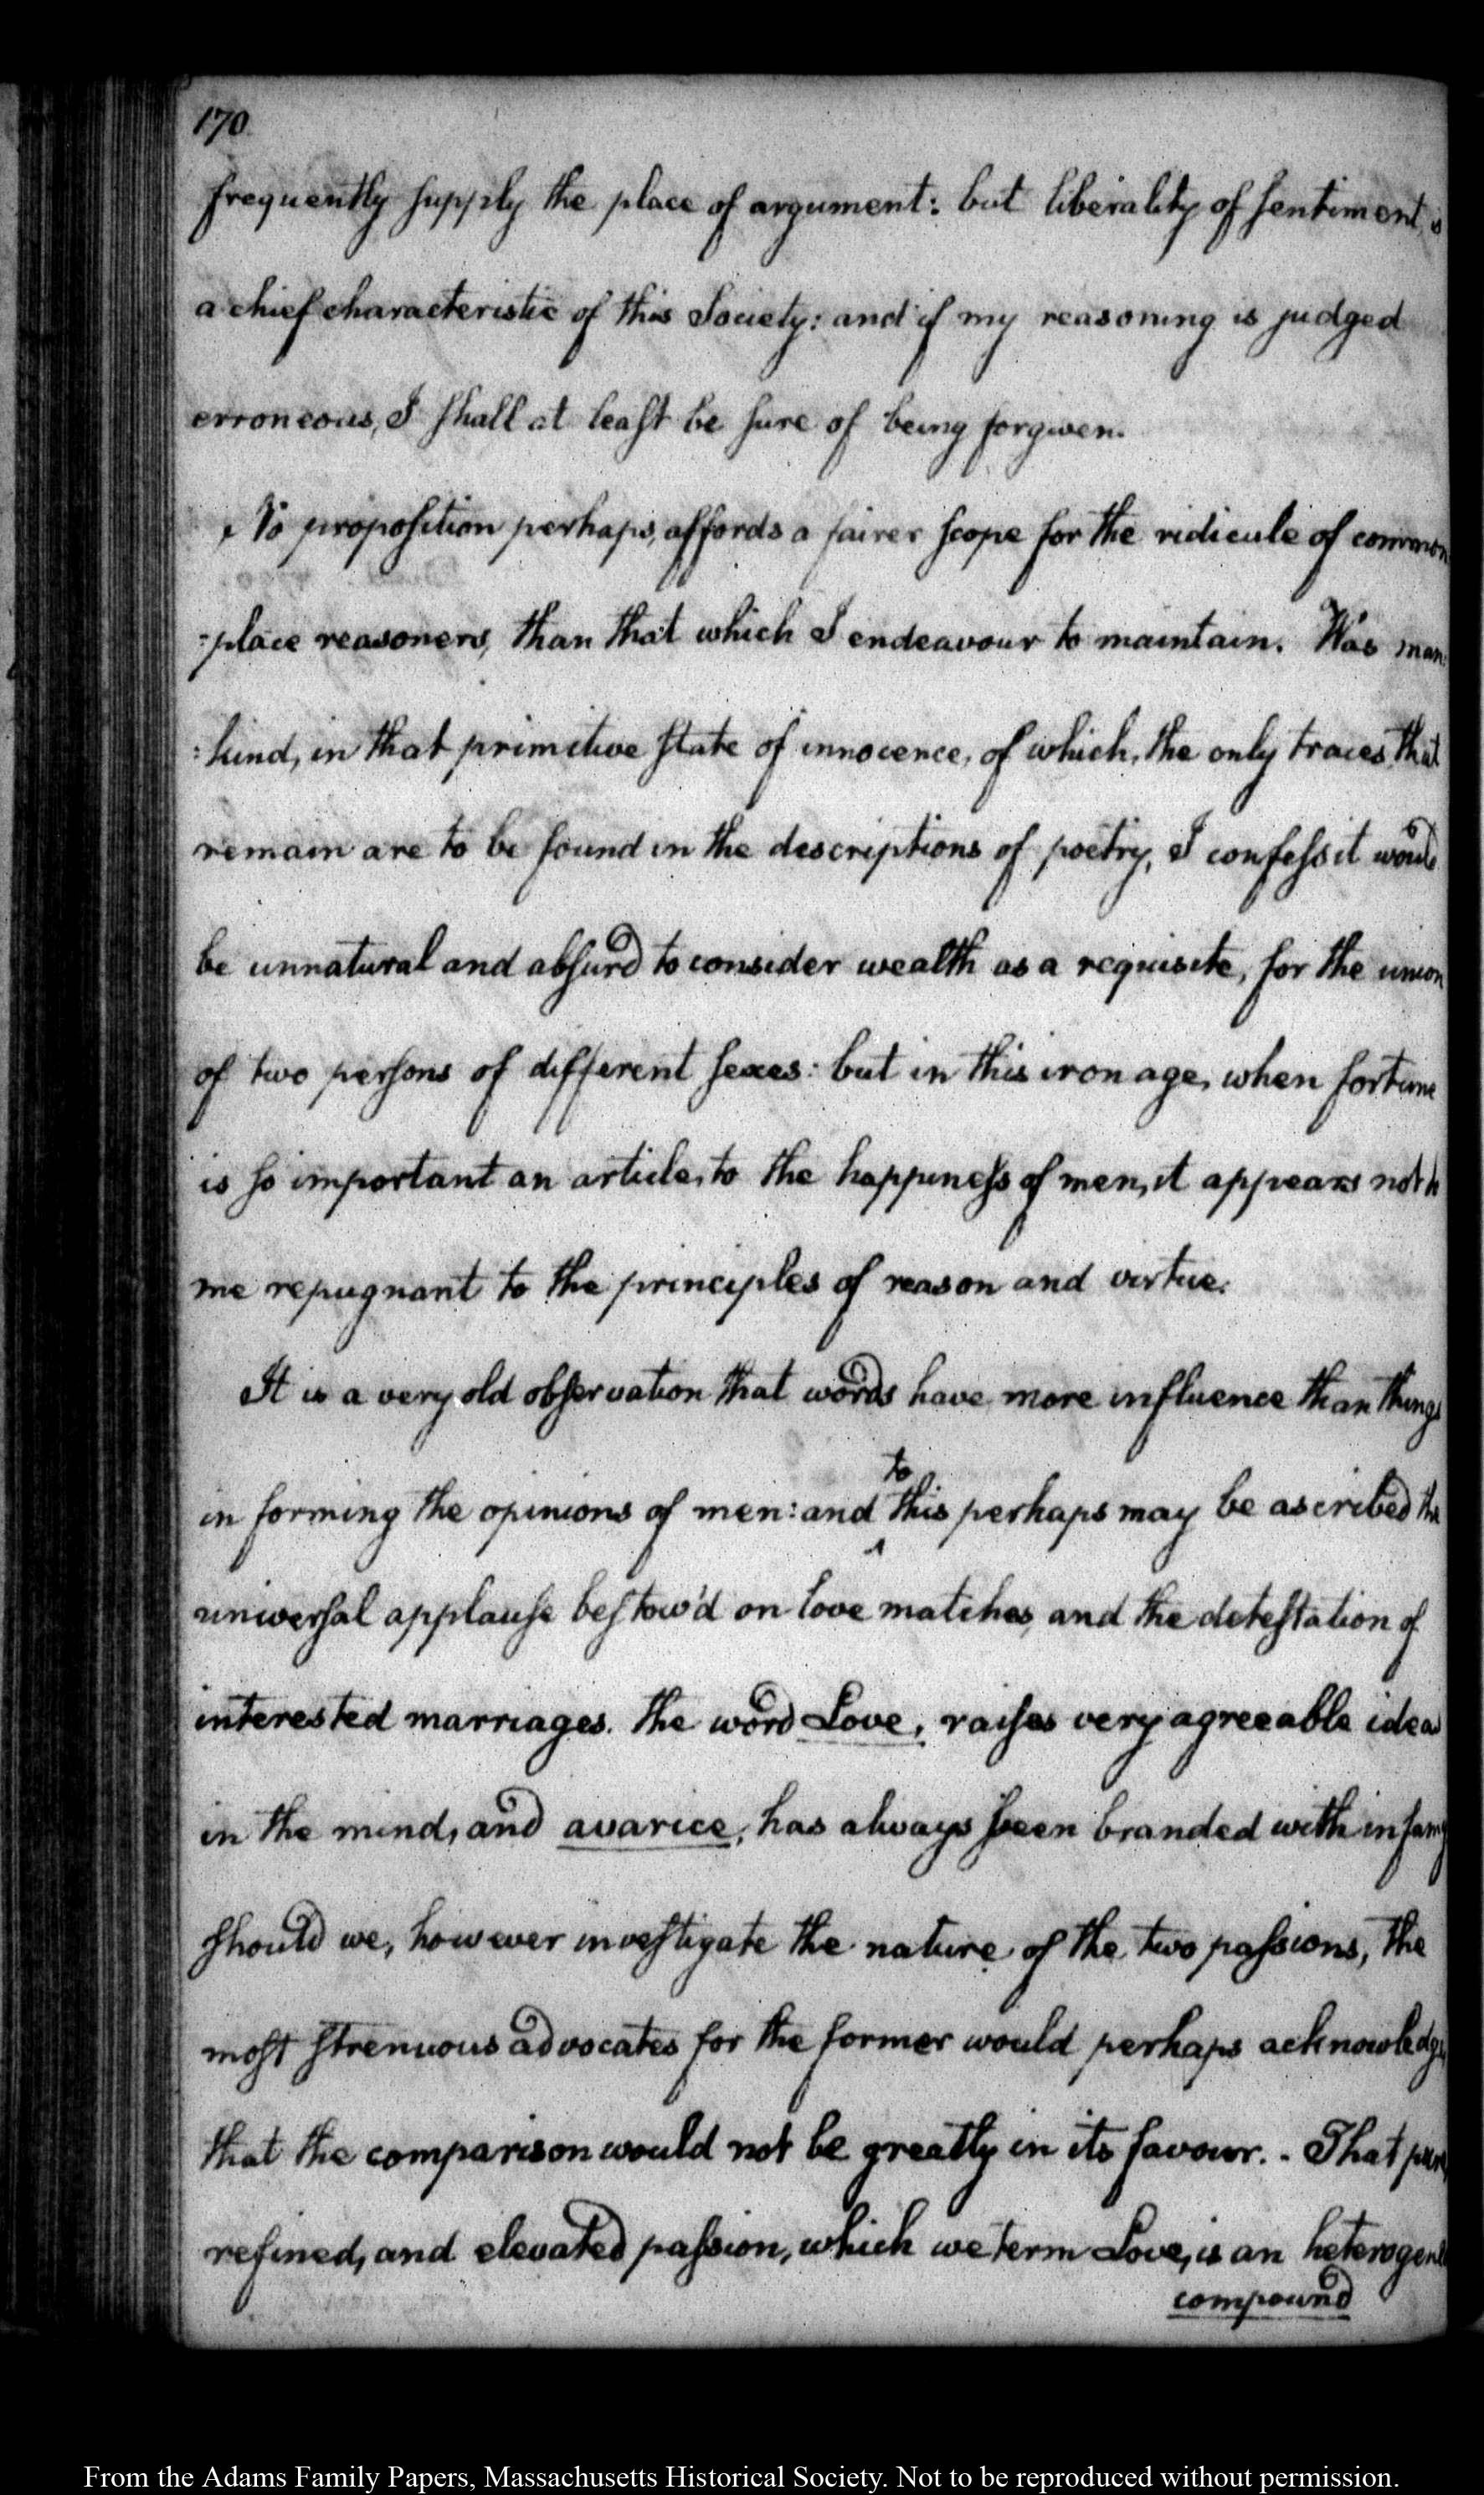 170
frequently supply the place of argument: but liberality of sentiment is
a chief characteristic of this Society: and if my reasoning is judged
erroneous, I shall at least be sure of being forgiven.
No proposition perhaps, affords a fairer scope for the ridicule of common
-place reasoners, than that which I endeavour to maintain. Was man:
:kind, in that primitive state of innocence, of which, the only traces that
remain are to be found in the descriptions of poetry, I confess it would
be unnatural and absurd to consider wealth as a requisite, for the union
of two persons of different sexes: but in this iron age, when fortune
is so important an article, to the happiness of men, it appears not to
me repugnant to the principles of reason and virtue.
It is a very old observation that words have more influence than things
in forming the opinions of men: and to this perhaps may be ascribed the
universal applause bestow'd on love matches, and the detestation of
interested marriages. The word Love, raises very agreeable ideas
in the mind, and avarice, has always been branded with infamy
should we, however investigate the nature of the two passions, the
most strenuous advocates for the former would perhaps acknowledge
that the comparison would not be greatly in its favour. - That pure
refined, and elevated passion, which we term Love, is an heterogene
compound
From the Adams Family Papers, Massachusetts Historical Society. Not to be reproduced without permission.